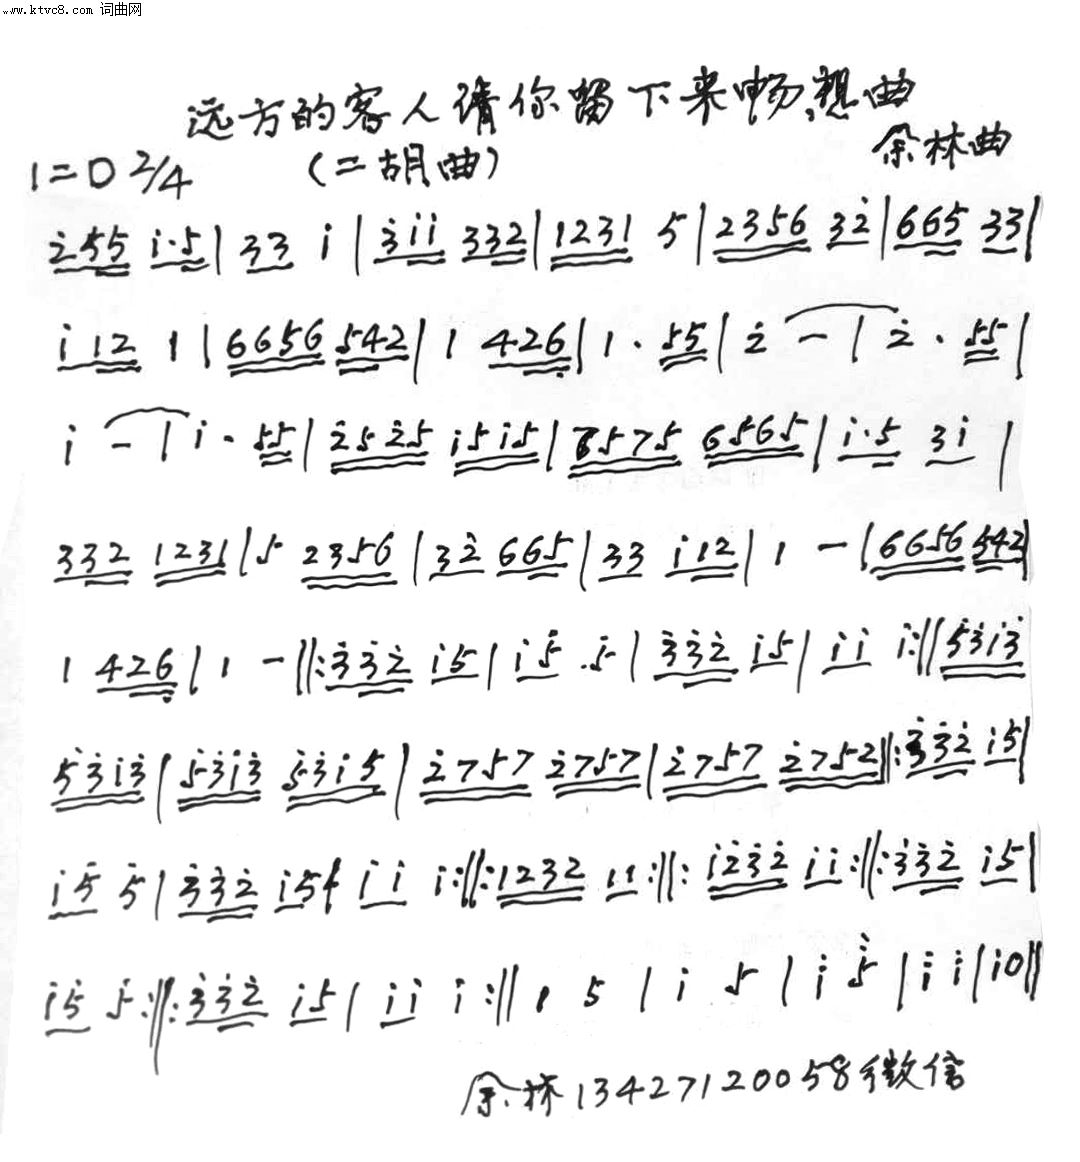 www.ktvc8.com 词曲网
远方的客人请你留下来畅想曲
1=D 2/4 (二胡曲) 余林曲
i̇55 i·5 | 33 i | 3̇ii 332 | 1231 5 | 2356 32̇ | 665 33 |
i12 1 | 6656 542 | 1 426̣ | 1 · 55 | 2̇ - | 2̇ · 55 |
i - | i · 55 | 2̇52̇5 i5i5 | 7575 6565 | i·5 3i |
332 1231 | 5 2356 | 32̇ 665 | 33 i12 | 1 - | 6656 542 |
1 426̣ | 1 - ‖: 3̇3̇2̇ i5 | i5̇ 5̇ | 3̇3̇2̇ i5 | ii i :‖ 5̇3̇i3̇
5̇3̇i3̇ | 5̇3̇i3̇ 5̇3̇i5 | 2̇757 2̇757 | 2̇757 2̇752 ‖: 3̇3̇2̇ i5 |
i5̇ 5̇ | 3̇3̇2̇ i5 | ii i :‖: 1232 11 :‖: i2̇3̇2̇ ii :‖: 3̇3̇2̇ i5 |
i5̇ 5̇ :‖: 3̇3̇2̇ i5 | ii i :‖ 1 5 | i 5 | i 5̇ | i i | i0 ‖
余林13427120058微信